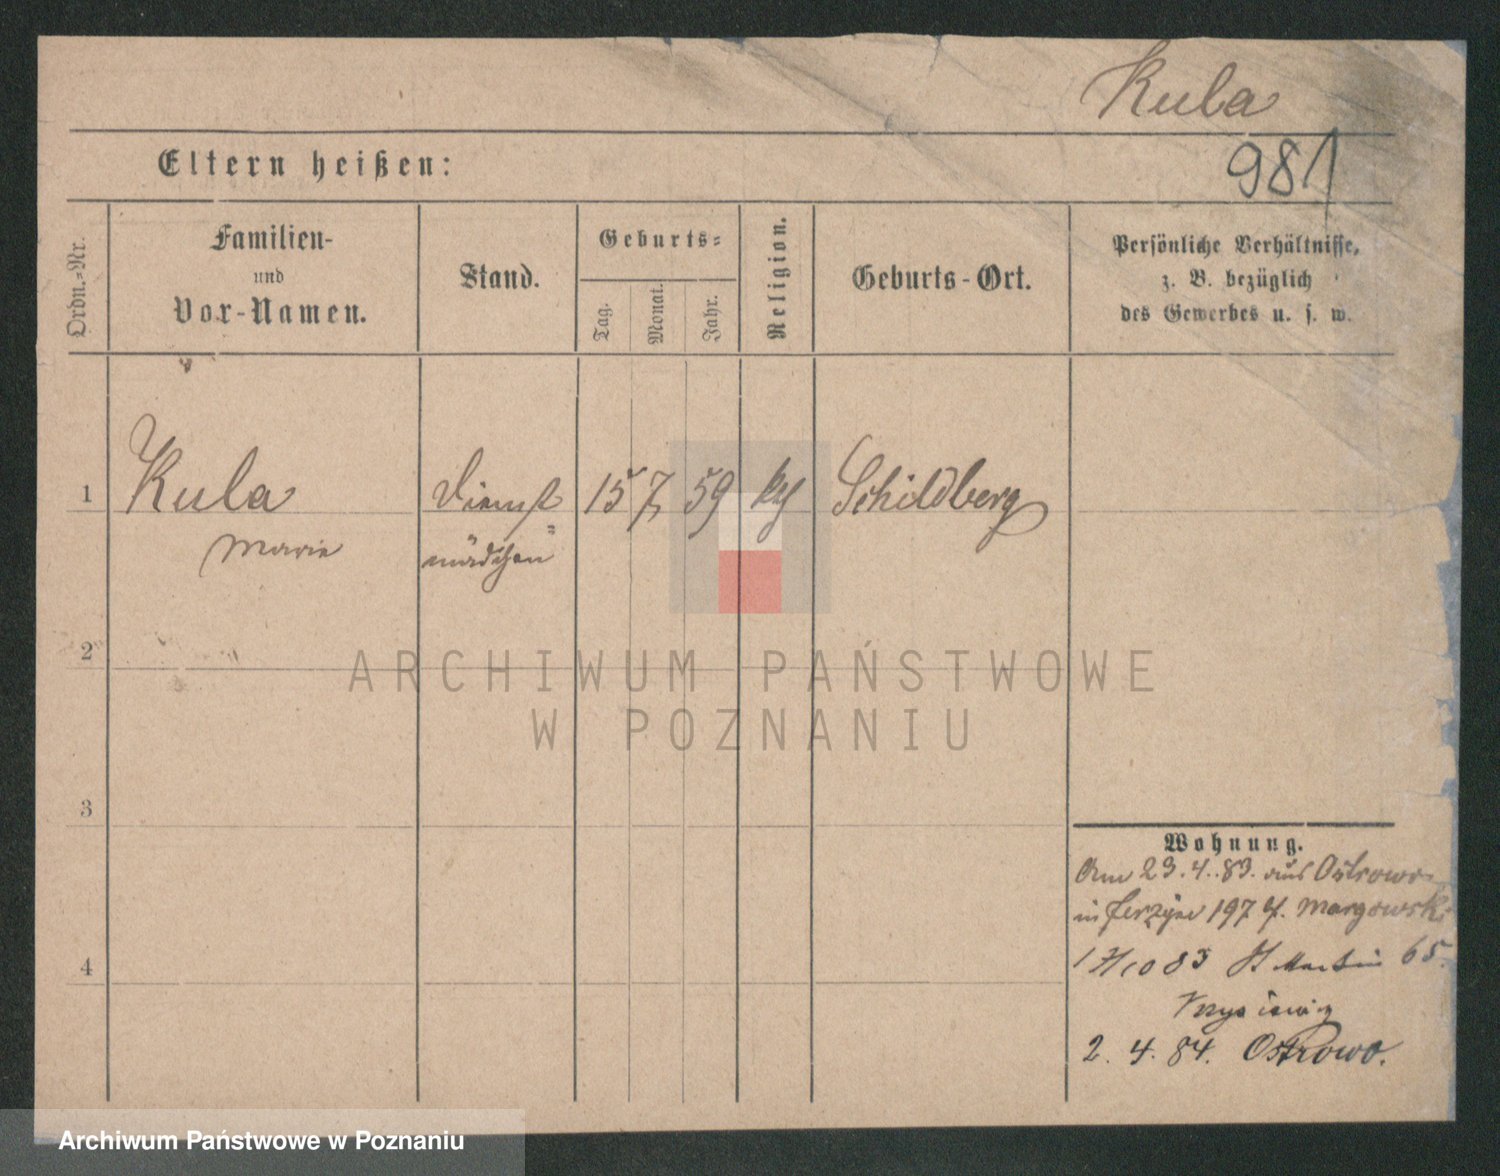 Kula
981
Eltern heißen:
Ordn.-Nr.
Familien-
und
Vor-Namen.
Stand.
Geburts=
Tag.
Monat.
Jahr.
Religion.
Geburts-Ort.
Persönliche Verhältnisse,
z. B. bezüglich
des Gewerbes u. s. w.
1 Kula Dienst= 15 7 59 kth Schildberg
Marie mädchen
2
ARCHIWUM PAŃSTWOWE
W POZNANIU
3
4
Wohnung.
Am 23.4.83. aus Ostrowo
in Jerzyce 197 Margowski
83 St Martin 65.
2. 4. 84. Ostrowo.
Archiwum Państwowe w Poznaniu